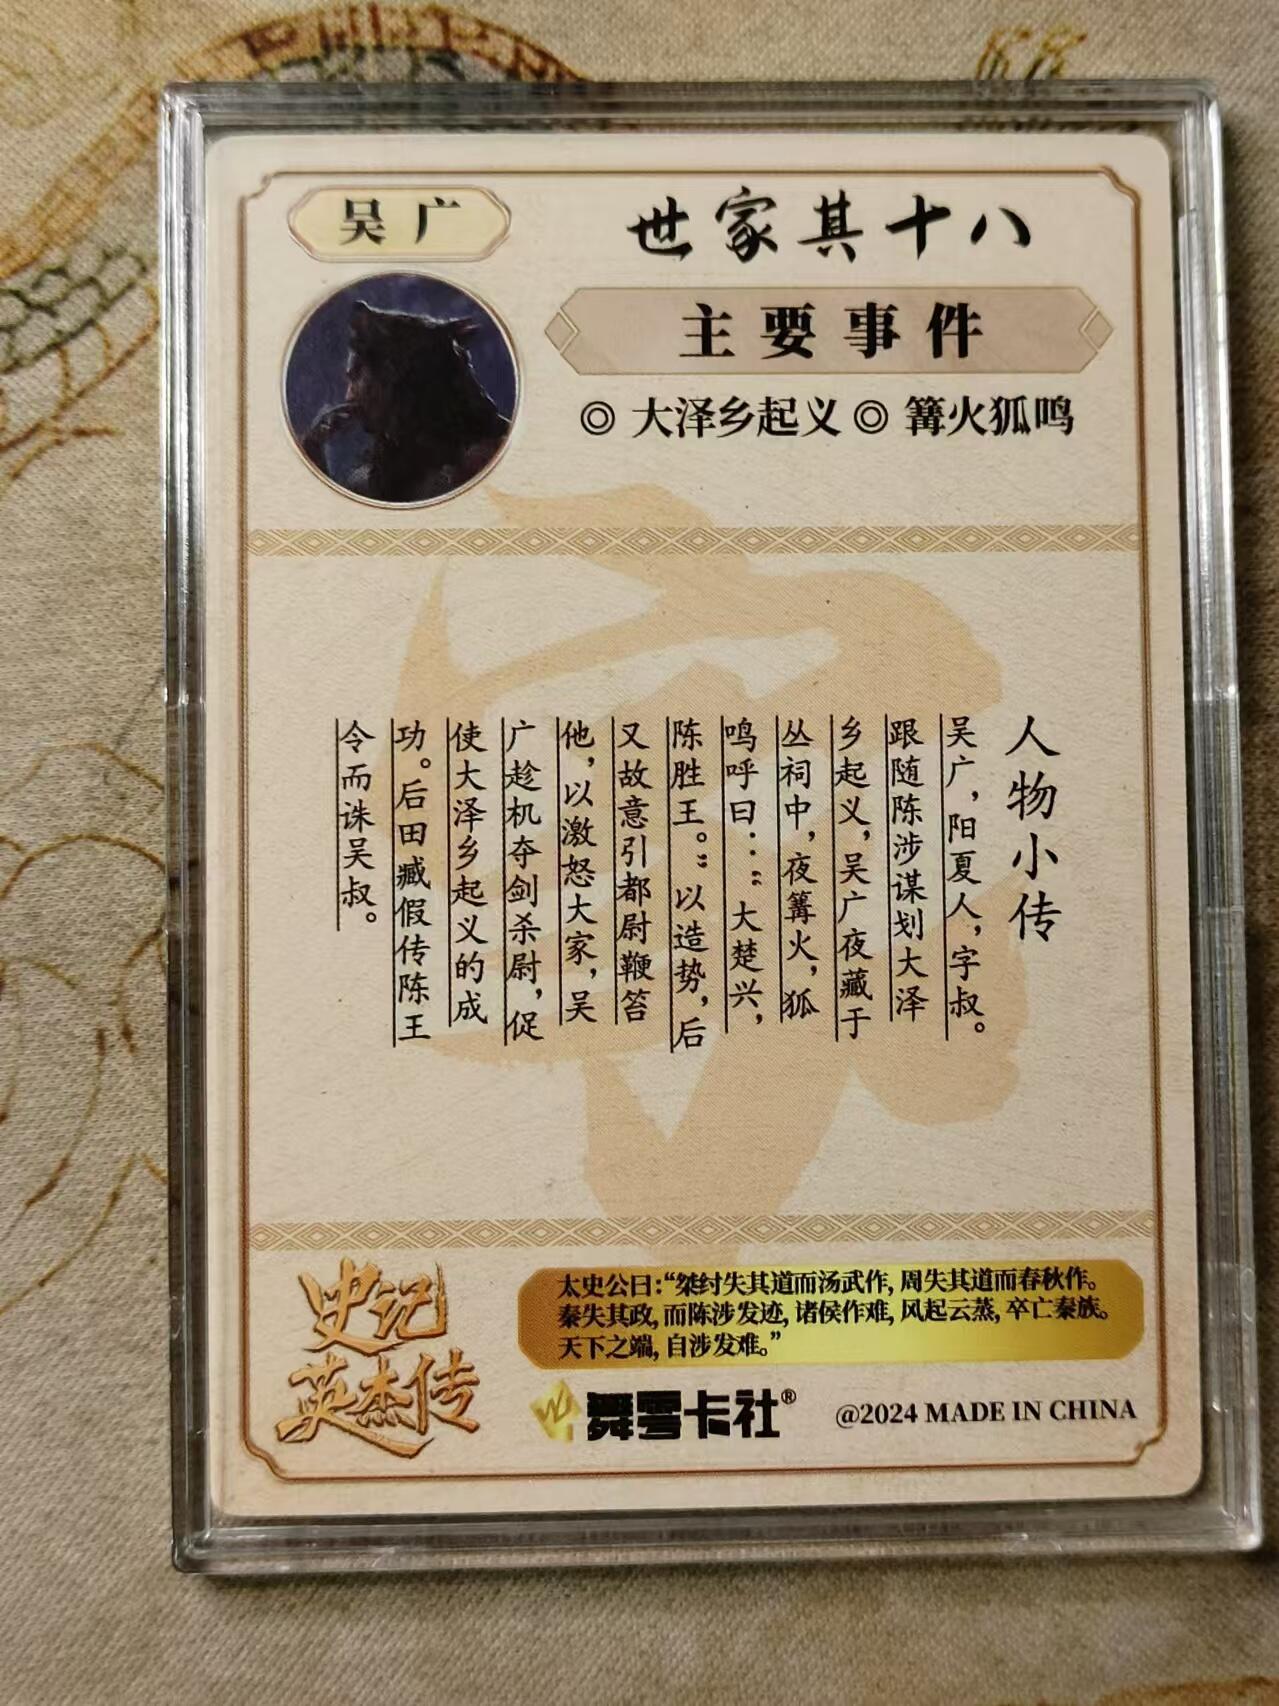 吴广
世家其十八
主要事件
◎ 大泽乡起义 ◎ 篝火狐鸣
人物小传
吴广，阳夏人，字叔。
跟随陈涉谋划大泽
乡起义，吴广夜藏于
丛祠中，夜篝火，狐
鸣呼曰：“大楚兴，
陈胜王。”以造势，后
又故意引都尉鞭笞
他，以激怒大家，吴
广趁机夺剑杀尉，促
使大泽乡起义的成
功。后田臧假传陈王
令而诛吴叔。
史记
英杰传
太史公曰：“桀纣失其道而汤武作，周失其道而春秋作。
秦失其政，而陈涉发迹，诸侯作难，风起云蒸，卒亡秦族。
天下之端，自涉发难。”
舞雩卡社®
@2024 MADE IN CHINA